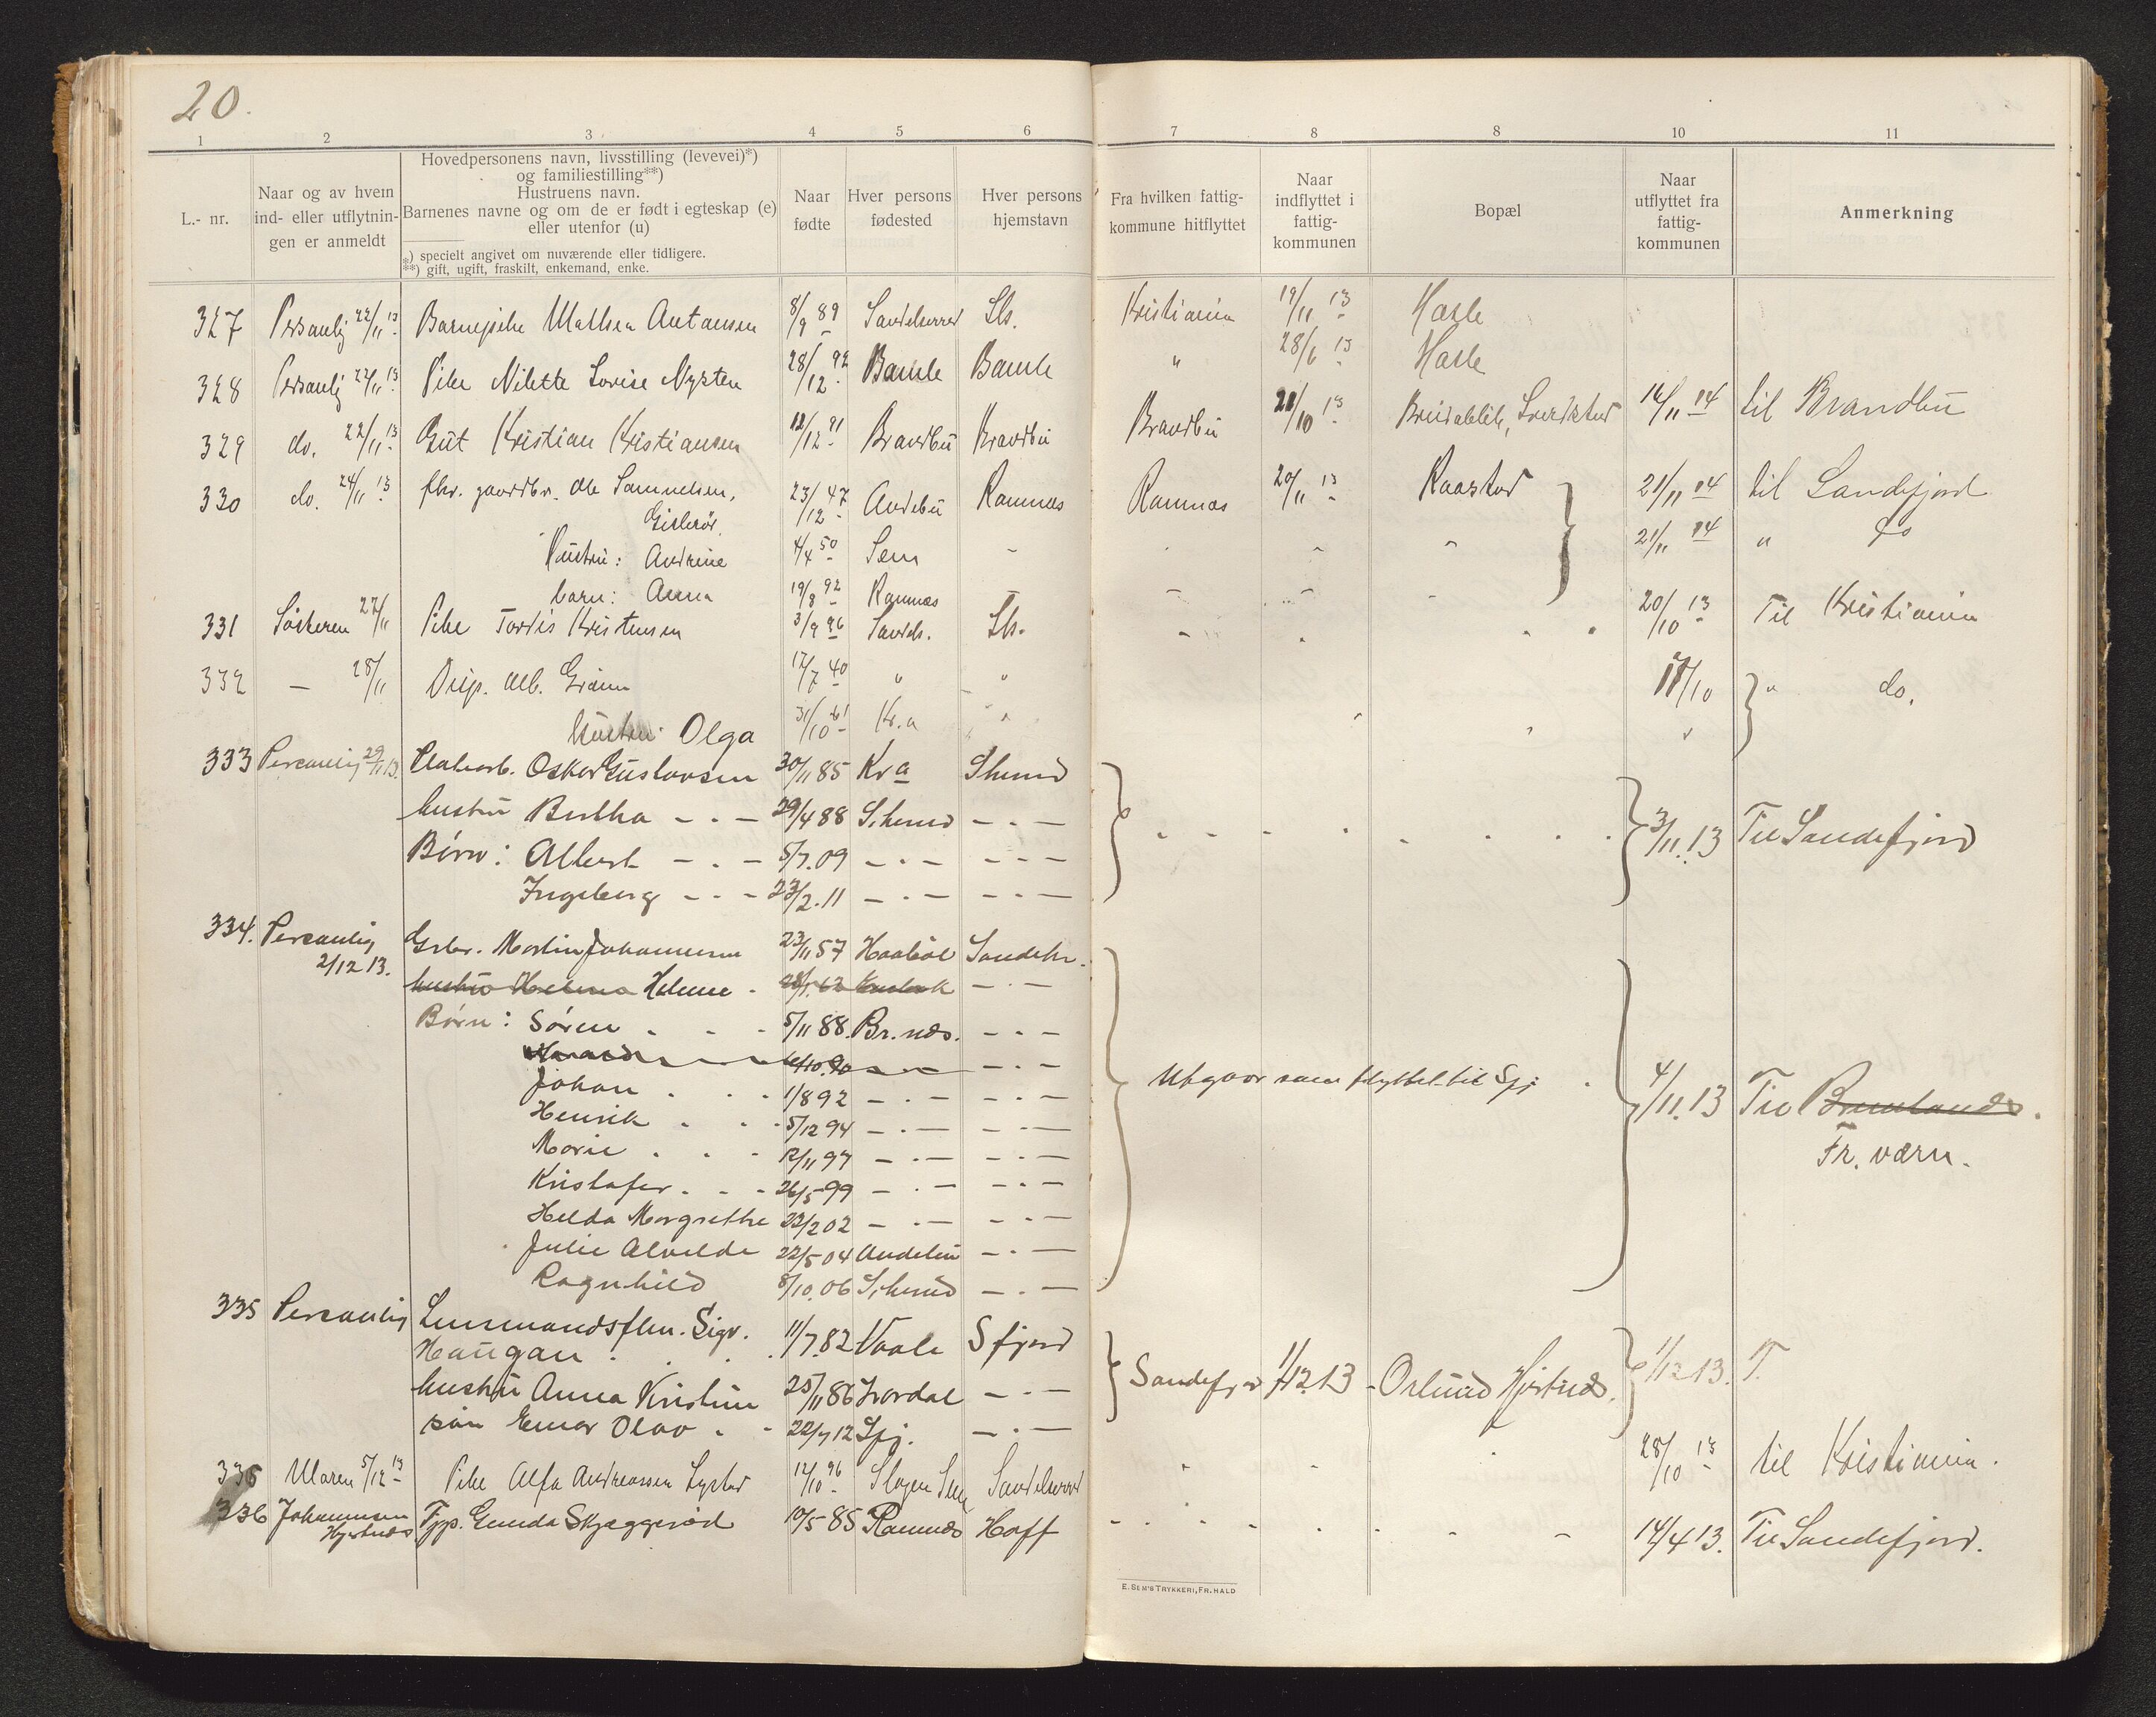 20.
1 2 3 4 5 6 7 8 8 10 11
L.- nr.
Naar og av hvem
ind- eller utflytnin-
gen er anmeldt
Hovedpersonens navn, livsstilling (levevei)*)
og familiestilling**)
Hustruens navn.
Barnenes navne og om de er født i egteskap (e)
eller utenfor (u)
*) specielt angivet om nuværende eller tidligere.
**) gift, ugift, fraskilt, enkemand, enke.
Naar
fødte
Hver persons
fødested
Hver persons
hjemstavn
Fra hvilken fattig-
kommune hitflyttet
Naar
indflyttet i
fattig-
kommunen
Bopæl
Naar
utflyttet fra
fattig-
kommunen
Anmerkning
327 Personlig 22/11 13 Barnepike Antansen 8/9 89 Sandeherred Sh. Kristiania 19/11 13 Hasle
328 Personlig 22/11 13 Pike Nilette Lovise Nysten 28/12 92 Bamle Bamle " 28/6 13 Hasle
329 do. 22/11 13 Gut Kristian Kristiansen 12/12 91 Brandbu Brandbu Brandbu 21/10 13 Breidablik, 14/11 14 til Brandbu
330 do. 24/11 13 fhv. gaardbr. Ole Samuelsen, 23/12 47 Andebu Ramnæs Ramnæs 20/11 13 Raastad 21/11 14 til Sandefjord
Gislerød.
Hustru: Andrine 4/4 50 Sem - 21/11 14 " do
barn: Anna 19/8 92 Ramnæs
331 Søsteren 27/11 Pike Tordis Kristensen 3/9 96 Sandeh. Sh. 20/10 13 Til Kristiania
332 — 28/11 Disp. Alb. Gram 17/7 40 " " 17/10 " do.
Hustru: Olga 31/10 61 Kr.a " "
333 Personlig 29/11 13. Oskar Gustavsen 30/11 85 Kra Skurd 3/11.13 Til Sandefjord
hustru Bertha - . - 29/4 88 S.herred - . -
Børn: Albert - . - 5/7.09 - . - - . -
Ingeborg - . - 23/2.11 - . - - . -
334. Personlig Grbr. Martin Johannesen 23/11 57 Haabøl Sandehr.
2/12 13.
hustru Helena Helene . - . -
Børn: Søren . . . 5/11 88. Br.næs. - . -
4/10.90 - . -
Johan . . . 1/8 92 - . - - . - Utgaar som flyttet til Sfj 4/11.13 Til Brunlanæs.
Henrik . . . 5/12 94 - . - - . -
Marie . . . 12/11 97 - . - - . - Fr. værn.
Kristofer . . . 26/5 99 - . - - . -
Helda Margrethe 23/2 02 - . - - . -
Julie Alvilde 22/5 04 Andebu - . -
Ragnhild 8/10.06 S.herred - . -
335 Personlig Lensmandsflm. Sigv. 11/7.82 Vaale Sfjord
Haugan . . .
Sandefjord 1/12 13 - Hjertnæs. 1/12 13. T.
hustru Anna Kristine 25/11 86 - . -
søn Einar Olav . . 22/7 12 Sfj. - . -
335 Maren 5/12 13 Pike Alfa Andreassen 12/10 96 Slagen Sem Sandeherred 28/10 13 til Kristiania.
336 Johannesen Tjp. Gunda Skjeggerød 10/5 85 Ramnæs Hoff 14/4 13. Til Sandefjord.
Hjertnæs
E. SEM'S TRYKKERI, FR.HALD